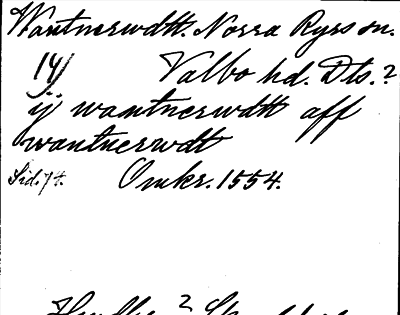 Wantnerwdtt. Norra Ryrs sn.
14/ Valbo hd. Dls.?
ij wantnerwdtt aff
wantnerwdt
Sid. 74. Omkr. 1554.